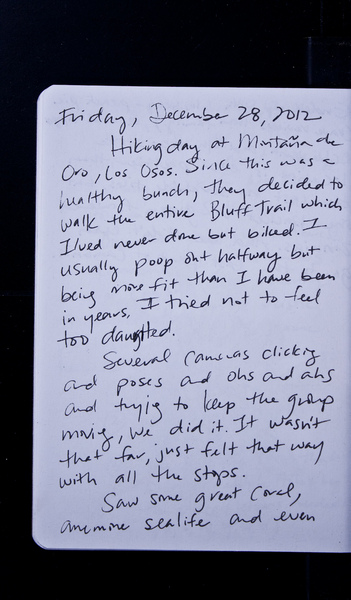 Friday, December 28, 2012
Hiking day at Montaña de
Oro, Los Osos. Since this was a
healthy bunch, they decided to
walk the entire Bluff Trail which
I've never done but biked. I
usually poop out halfway but
being more fit than I have been
in years, I tried not to feel
too daunted.
Several cameras clicking
and poses and ohs and ahs
and trying to keep the group
moving, we did it. It wasn't
that far, just felt that way
with all the stops.
Saw some great coral,
anemone sealife and even